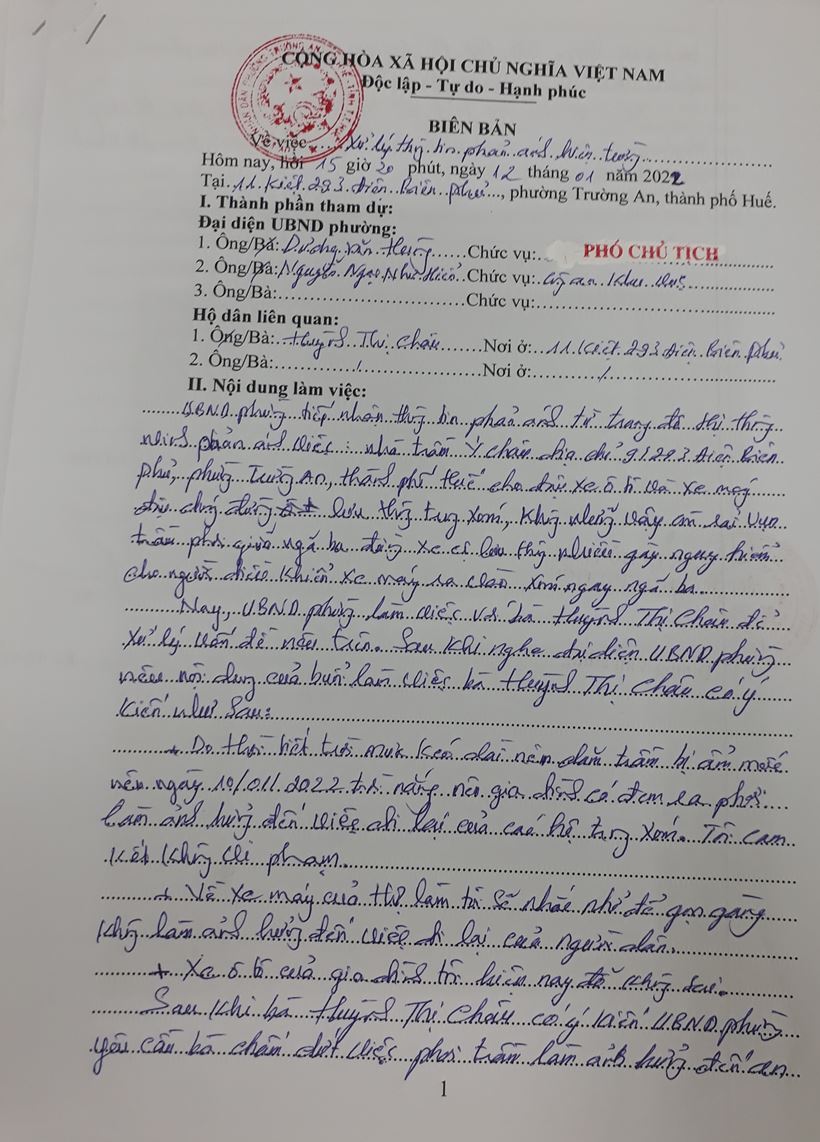 CỘNG HÒA XÃ HỘI CHỦ NGHĨA VIỆT NAM
Độc lập - Tự do - Hạnh phúc
BIÊN BẢN
Về việc Xử lý thông tin phản ánh hiện trường
Hôm nay, hồi 15 giờ 20 phút, ngày 12 tháng 01 năm 2022
Tại 11 Kiệt 293 Điện Biên Phủ, phường Trường An, thành phố Huế.
I. Thành phần tham dự:
Đại diện UBND phường:
1. Ông/Bà: Dương Văn Chức vụ: PHÓ CHỦ TỊCH
2. Ông/Bà: Nguyễn Ngọc Như Hiếu Chức vụ: Công an Khu vực
3. Ông/Bà: Chức vụ:
Hộ dân liên quan:
1. Ông/Bà: Huỳnh Thị Châu Nơi ở: 11 Kiệt 293 Điện Biên Phủ
2. Ông/Bà: / Nơi ở: /
II. Nội dung làm việc:
UBND phường tiếp nhận thông tin phản ánh từ trang đô thị thông
minh phản ánh việc: nhà trầm Ý Châu địa chỉ 9/293 Điện Biên
Phủ, phường Trường An, thành phố Huế cho đậu xe ô tô và xe máy
đường lưu thông trong xóm, không những vậy còn rải vụn
trầm phơi giữa ngã ba đường xe cộ lưu thông nhiều gây nguy hiểm
cho người điều khiển xe máy ra vào xóm ngay ngã ba.
Nay, UBND phường làm việc với bà Huỳnh Thị Châu để
xử lý vấn đề nêu trên. Sau khi nghe đại diện UBND phường
nêu nội dung của buổi làm việc bà Huỳnh Thị Châu có ý
kiến như sau:
+ Do thời tiết trời mưa kéo dài nên dăm trầm bị ẩm mốc
nên ngày 10/01/2022 trời nắng nên gia đình có đem ra phơi
làm ảnh hưởng đến việc đi lại của các hộ trong xóm. Tôi cam
kết không vi phạm.
+ Về xe máy của thợ làm tôi sẽ nhắc nhở để gọn gàng
không làm ảnh hưởng đến việc đi lại của người dân.
+ Xe ô tô của gia đình tôi hiện nay đỗ không
Sau khi bà Huỳnh Thị Châu có ý kiến UBND phường
yêu cầu bà chấm dứt việc phơi trầm làm ảnh hưởng đến an
1